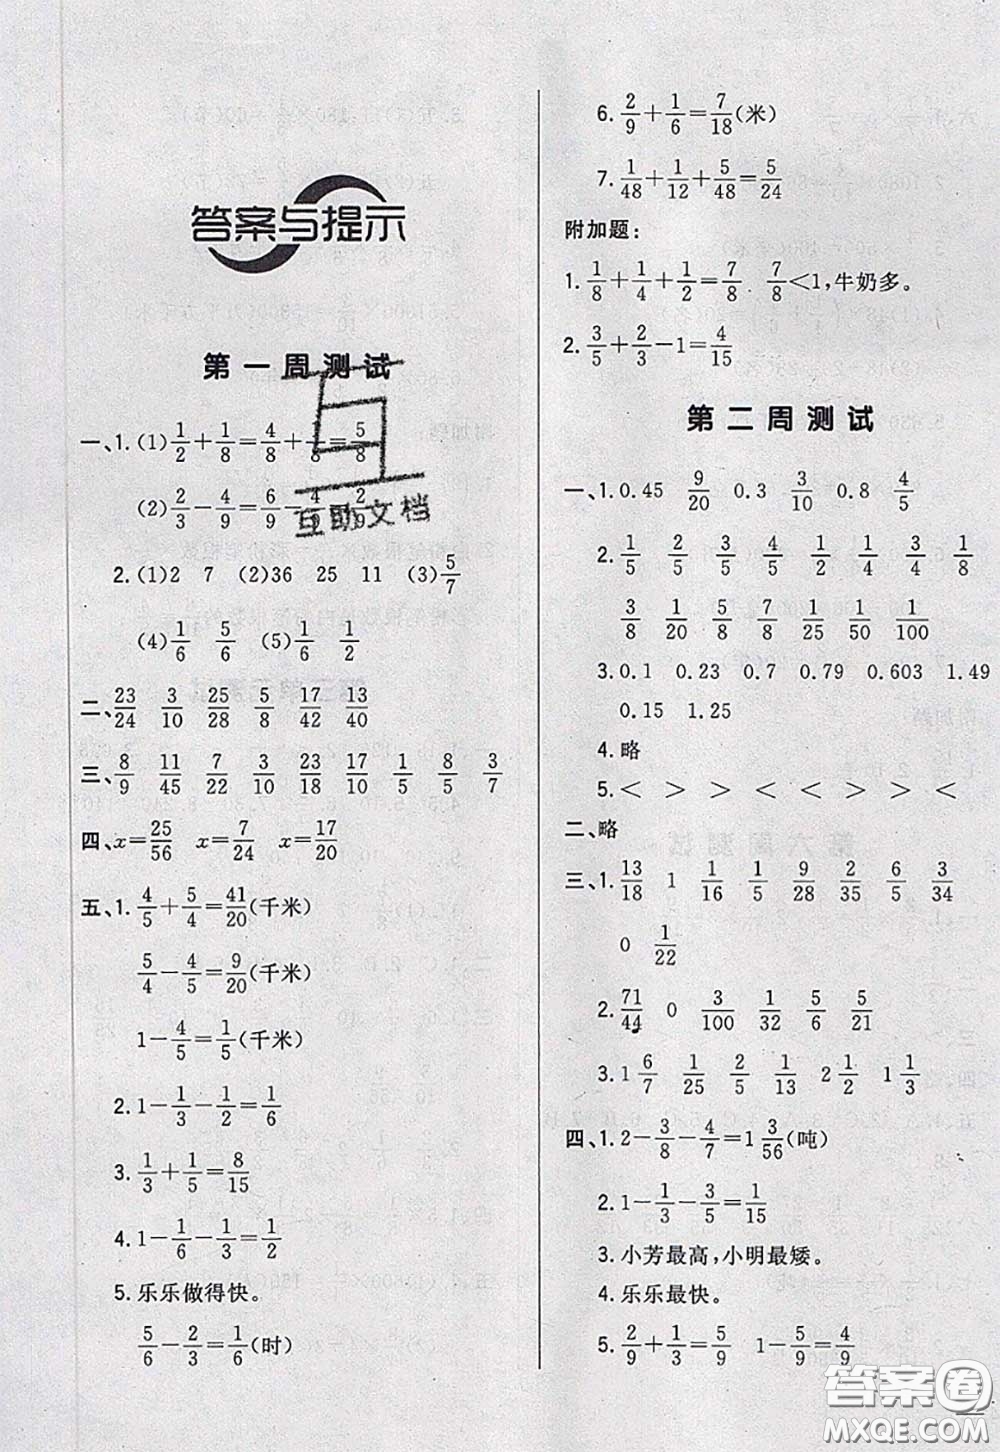 答案与提示
第一周测试
一、1.(1)1/2+1/8=4/8+1/8=5/8
(2)2/3-4/9=6/9-4/9=2/9
2.(1)2 7 (2)36 25 11 (3)5/7
(4)1/6 5/6 (5)1/6 1/2
二、23/24 3/10 25/28 5/8 17/42 13/40
三、8/9 11/45 22/72 23/30 23/24 17/20 1/5 5/8 3/7
四、x=25/56 x=7/24 x=17/20
五、1.4/5+5/4=41/20(千米)
5/4-4/5=9/20(千米)
1-4/5=1/5(千米)
2.1-1/3-1/2=1/6
3.1/3+1/5=8/15
4.1-1/6-1/3=1/2
5.乐乐做得快。
5/6-2/3=1/6(时)
6.2/9+1/6=7/18(米)
7.1/48+1/12+5/48=5/24
附加题:
1.1/8+1/4+1/2=7/8 7/8<1,牛奶多。
2.3/5+2/3-1=4/15
第二周测试
一、1.0.45 9/20 0.3 3/10 0.8 4/5
2.1/5 2/5 3/5 1/2 1/4 3/4 1/8
3/8 1/20 5/8 7/8 1/25 1/50 1/100
3.0.1 0.23 0.7 0.79 0.603 1.49
0.15 1.25
4.略
5.< > > < < > <
二、略
三、1.13/18 1 1/16 1/5 9/28 2/35 6/7 3/34
0 1/22
2.71/44 0 3/100 1/32 5/6 6/5
3.1 6/7 1/25 2/5 1/13 2 1/2 1 1/3
四、1.2-3/8-4/7=1 3/56(吨)
2.1-1/3-3/5=1/15
3.小芳最高,小明最矮。
4.乐乐最快。
5.2/9+1/3=5/9 1-5/9=4/9
互助文档
答案圈
MXQE.COM